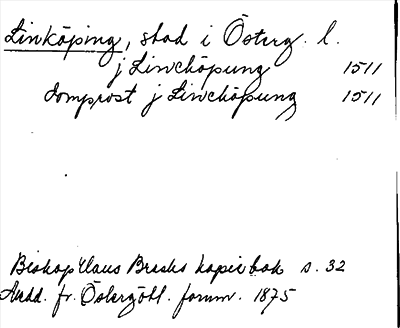 Linköping, stad i Österg. l.
j Linchöpung 1511
domprost j Linchöpung 1511
Biskop Claus Brasks kopiebok s. 32
Medd. fr. Östergötl. fornm. 1875